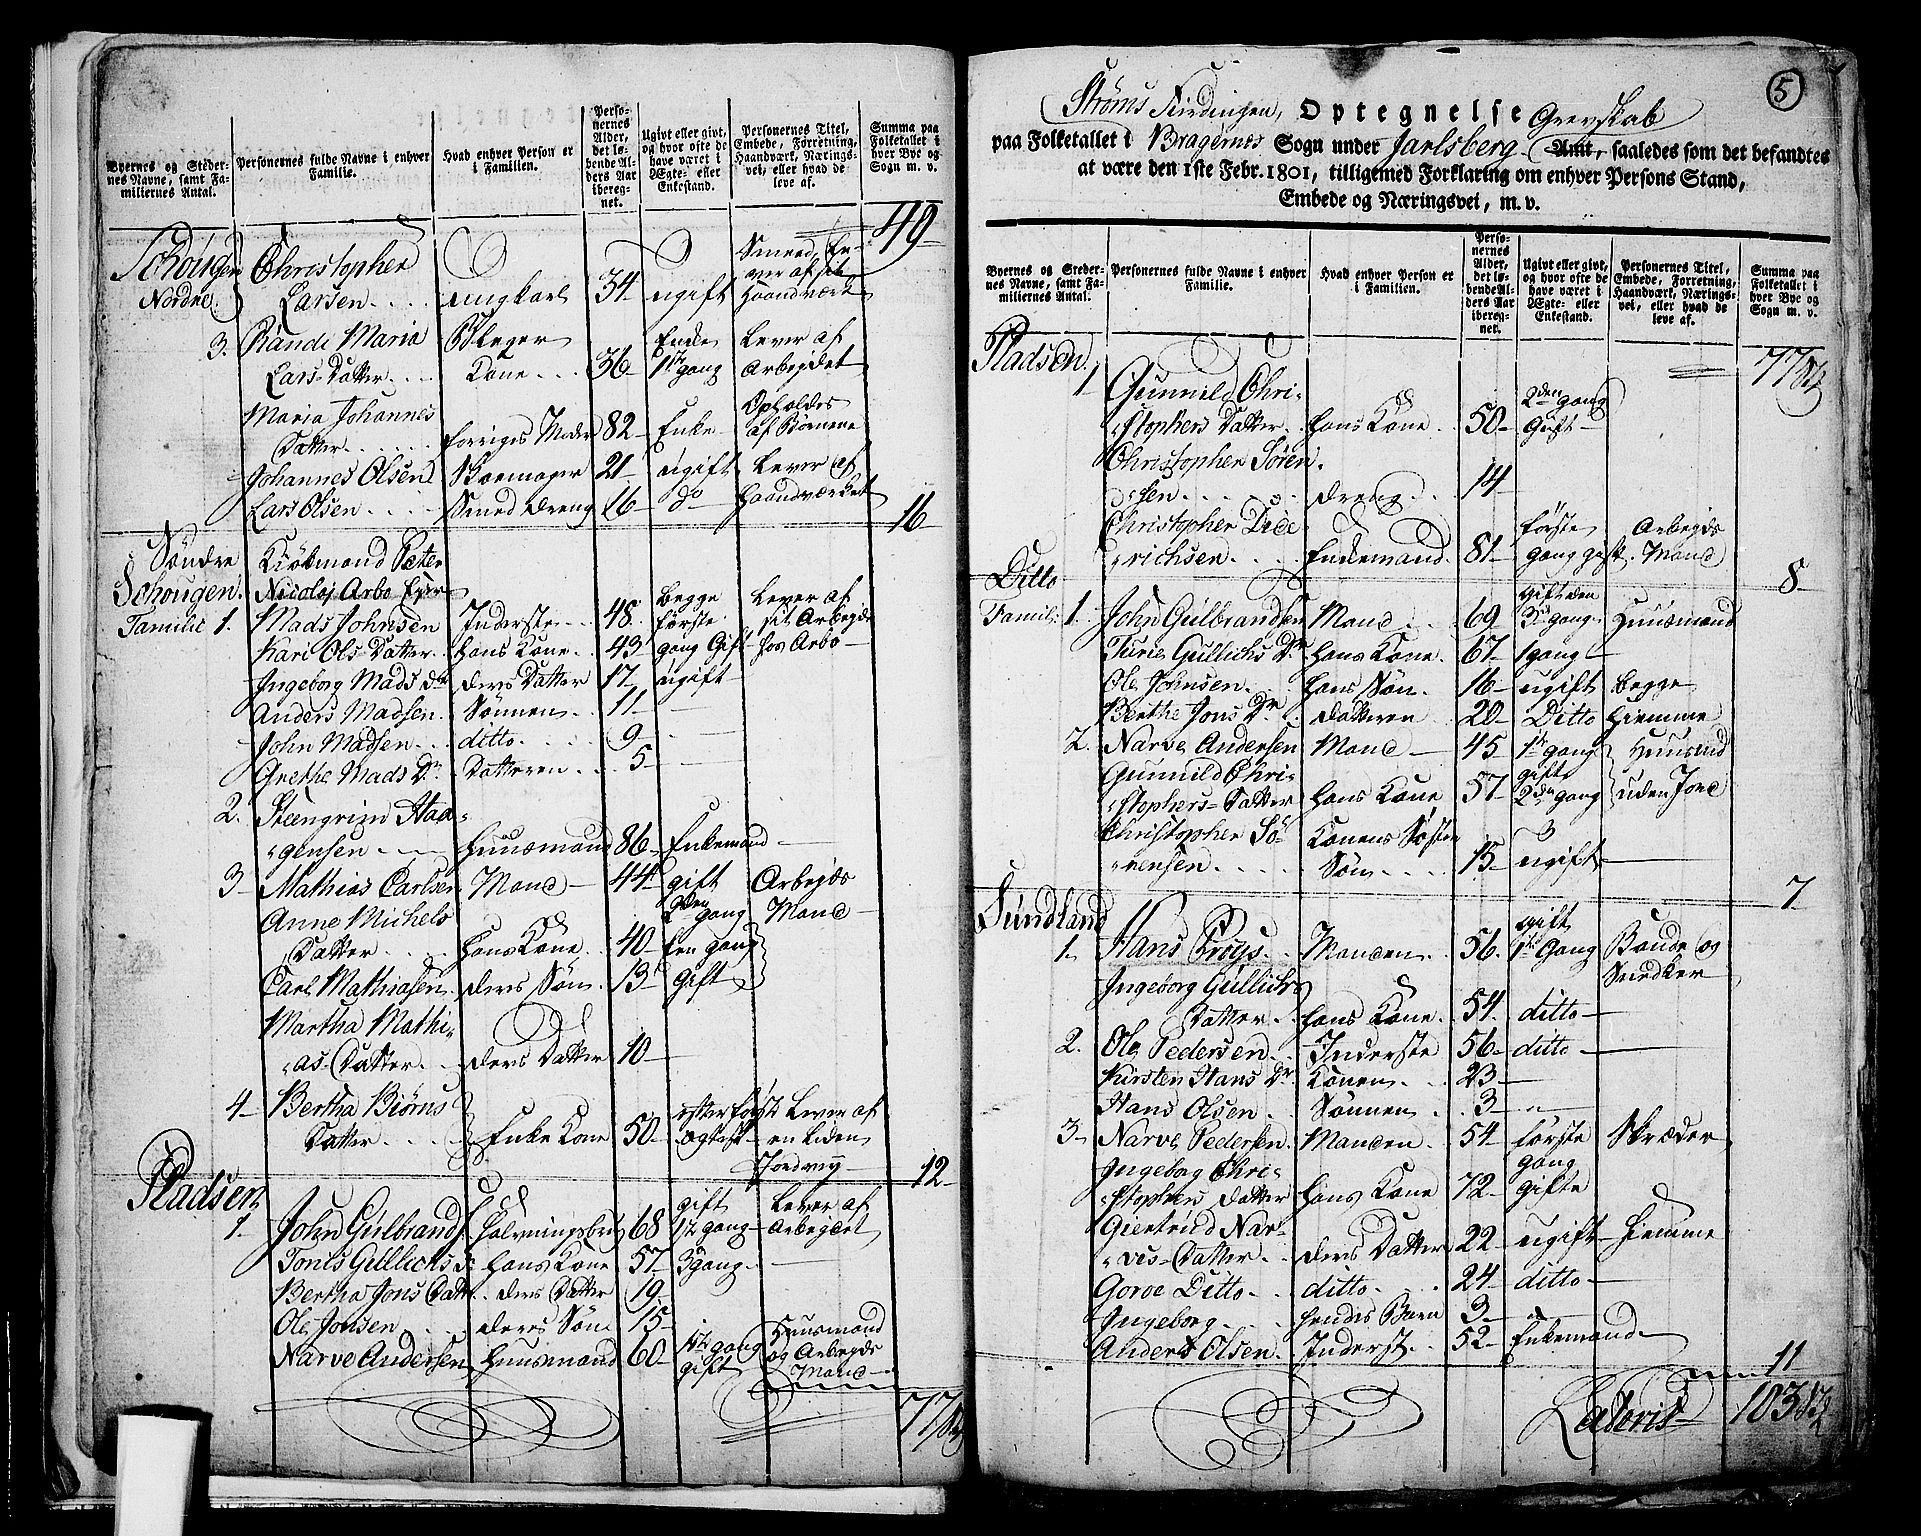 Byernes og Steder-
nes Navne, samt Fa-
miliernes Antal.
Personernes fulde Navne i enhver
Familie.
Hvad enhver Person er
i Familien.
Perso-
nernes
Alder,
det lø-
bende Al-
ders Aar
ibereg-
net.
Ugivt eller givt,
og hvor ofte de
have været i
Ægte- eller
Enkestand.
Personernes Titel,
Embede, Forretning,
Haandværk, Nærings-
vei, eller hvad de
leve af.
Summa paa
Folketallet i
hver Bye og
Sogn m. v.
49
Schougen Christopher
Nordre Larsen ungkarl 34 ugift
Haandværk
3. Rande Maria Enke Lever af
Lars Datter Kone 36 1ste gang Arbejdet
Maria Johannes Opholdes
Datter forriges Moder 82 Enke af Børnene
Johannes Olsen Skoemager 21 ugift Lever af
Lars Olsen Smed Dreng 16 do Haandværket
16
Søndre Kiøbmand Peter
Schougen. Nicolaj Arbo Ejer
Familie 1. Mads Johnsen Inderste 48 begge første Lever af sit Arbejde
Kari Ols Datter hans Kone 43 gang Gift hos Arbo
Ingeborg Mads dr ders Datter 17 ugift
Anders Madsen Sønnen 11
John Madsen ditto 9
Grethe Mads Dr Datteren 5
2. Steengrim Haa-
gensen Huusmand 86 Enkemand
3 Mathias Carlsen Mand 44 gift Arbejds
Anne Michels 2den gang Mand
Datter hans Kone 40 een gang
Carl Mathiasen ders Søn 13 Gift
Martha Mathi-
as Datter ders Datter 10
4 Bertha Biørns
Datter Enke Kone 50 Lever af
en liden
Jordvej
12
Pladsen
1. John Gulbrands 68 gift 1ste gang Lever af Arbejdet
Tonis Gullichs dr hans Kone 57 3 gang
Bertha Jons Datter ders Datter 19
Ole Jonsen deres Søn 15
Narve Andersen Huusmand 60 1ste gang gift Huusmand og Arbejds Mand
77
5
Strøms Tinglaugen, Optegnelse Grevskab
paa Folketallet i Bragernes Sogn under Jarlsberg Amt, saaledes som det befandtes
at være den 1ste Febr. 1801, tilligemed Forklaring om enhver Persons Stand,
Embede og Næringsvei, m. v.
Byernes og Steder-
nes Navne, samt Fa-
miliernes Antal.
Personernes fulde Navne i enhver
Familie.
Hvad enhver Person er
i Familien.
Perso-
nernes
Alder,
det lø-
bende Al-
ders Aar
ibereg-
net.
Ugivt eller givt,
og hvor ofte de
have været i
Ægte- eller
Enkestand.
Personernes Titel,
Embede, Forretning,
Haandværk, Nærings-
vei, eller hvad de
leve af.
Summa paa
Folketallet i
hver Bye og
Sogn m. v.
Pladsen 77
1 Gunnild Chri- 2den gang
stophers Datter hans Kone 50 Gift
Christopher Søren-
sen dreng 14
Christopher Dide- første Arbejds
richsen Enkemand 81 gang gift Mand
8
Ditto
Famil: 1. John Gulbrandsen Mand 69 gift den 3de gang Huusmand
Turie Gullichs Dr hans Kone 67 1 gang
Ole Johnsen hans Søn 16 ugift begge
Berthe Jons Dr datteren 20 Ditto hiemme
2. Narve Andersen Mand 45 1ste gang Huusmd
Gunnild Chri- gift
stophers Datter hans Kone 57 2den gang uden Jord
Christopher Sø- Konens Søster
rensen Søn 15 ugift
7
Sundland
1. Hans Frøys Manden 56 gift 1ste Gang Bonde og
Ingebørg Gullichs Snedker
Datter hans Kone 54 ditto
2. Ole Pedersen Inderste 56 ditto
Kirsten Hans Dr Konen 23
Hans Olsen Sønnen 3
3 Narve Pedersen Manden 54 første Skræder
Ingeborg Chri- gang
stophers datter hans Kone 72 gifte
Giertrud Nar-
ves Datter ders Datter 22 ugift hiemme
Goroe Ditto ditto 24 ditto
Ingeborg hendes Barn 3
Anders Olsen Inderst 52 Enkemand
11
Lateris 103